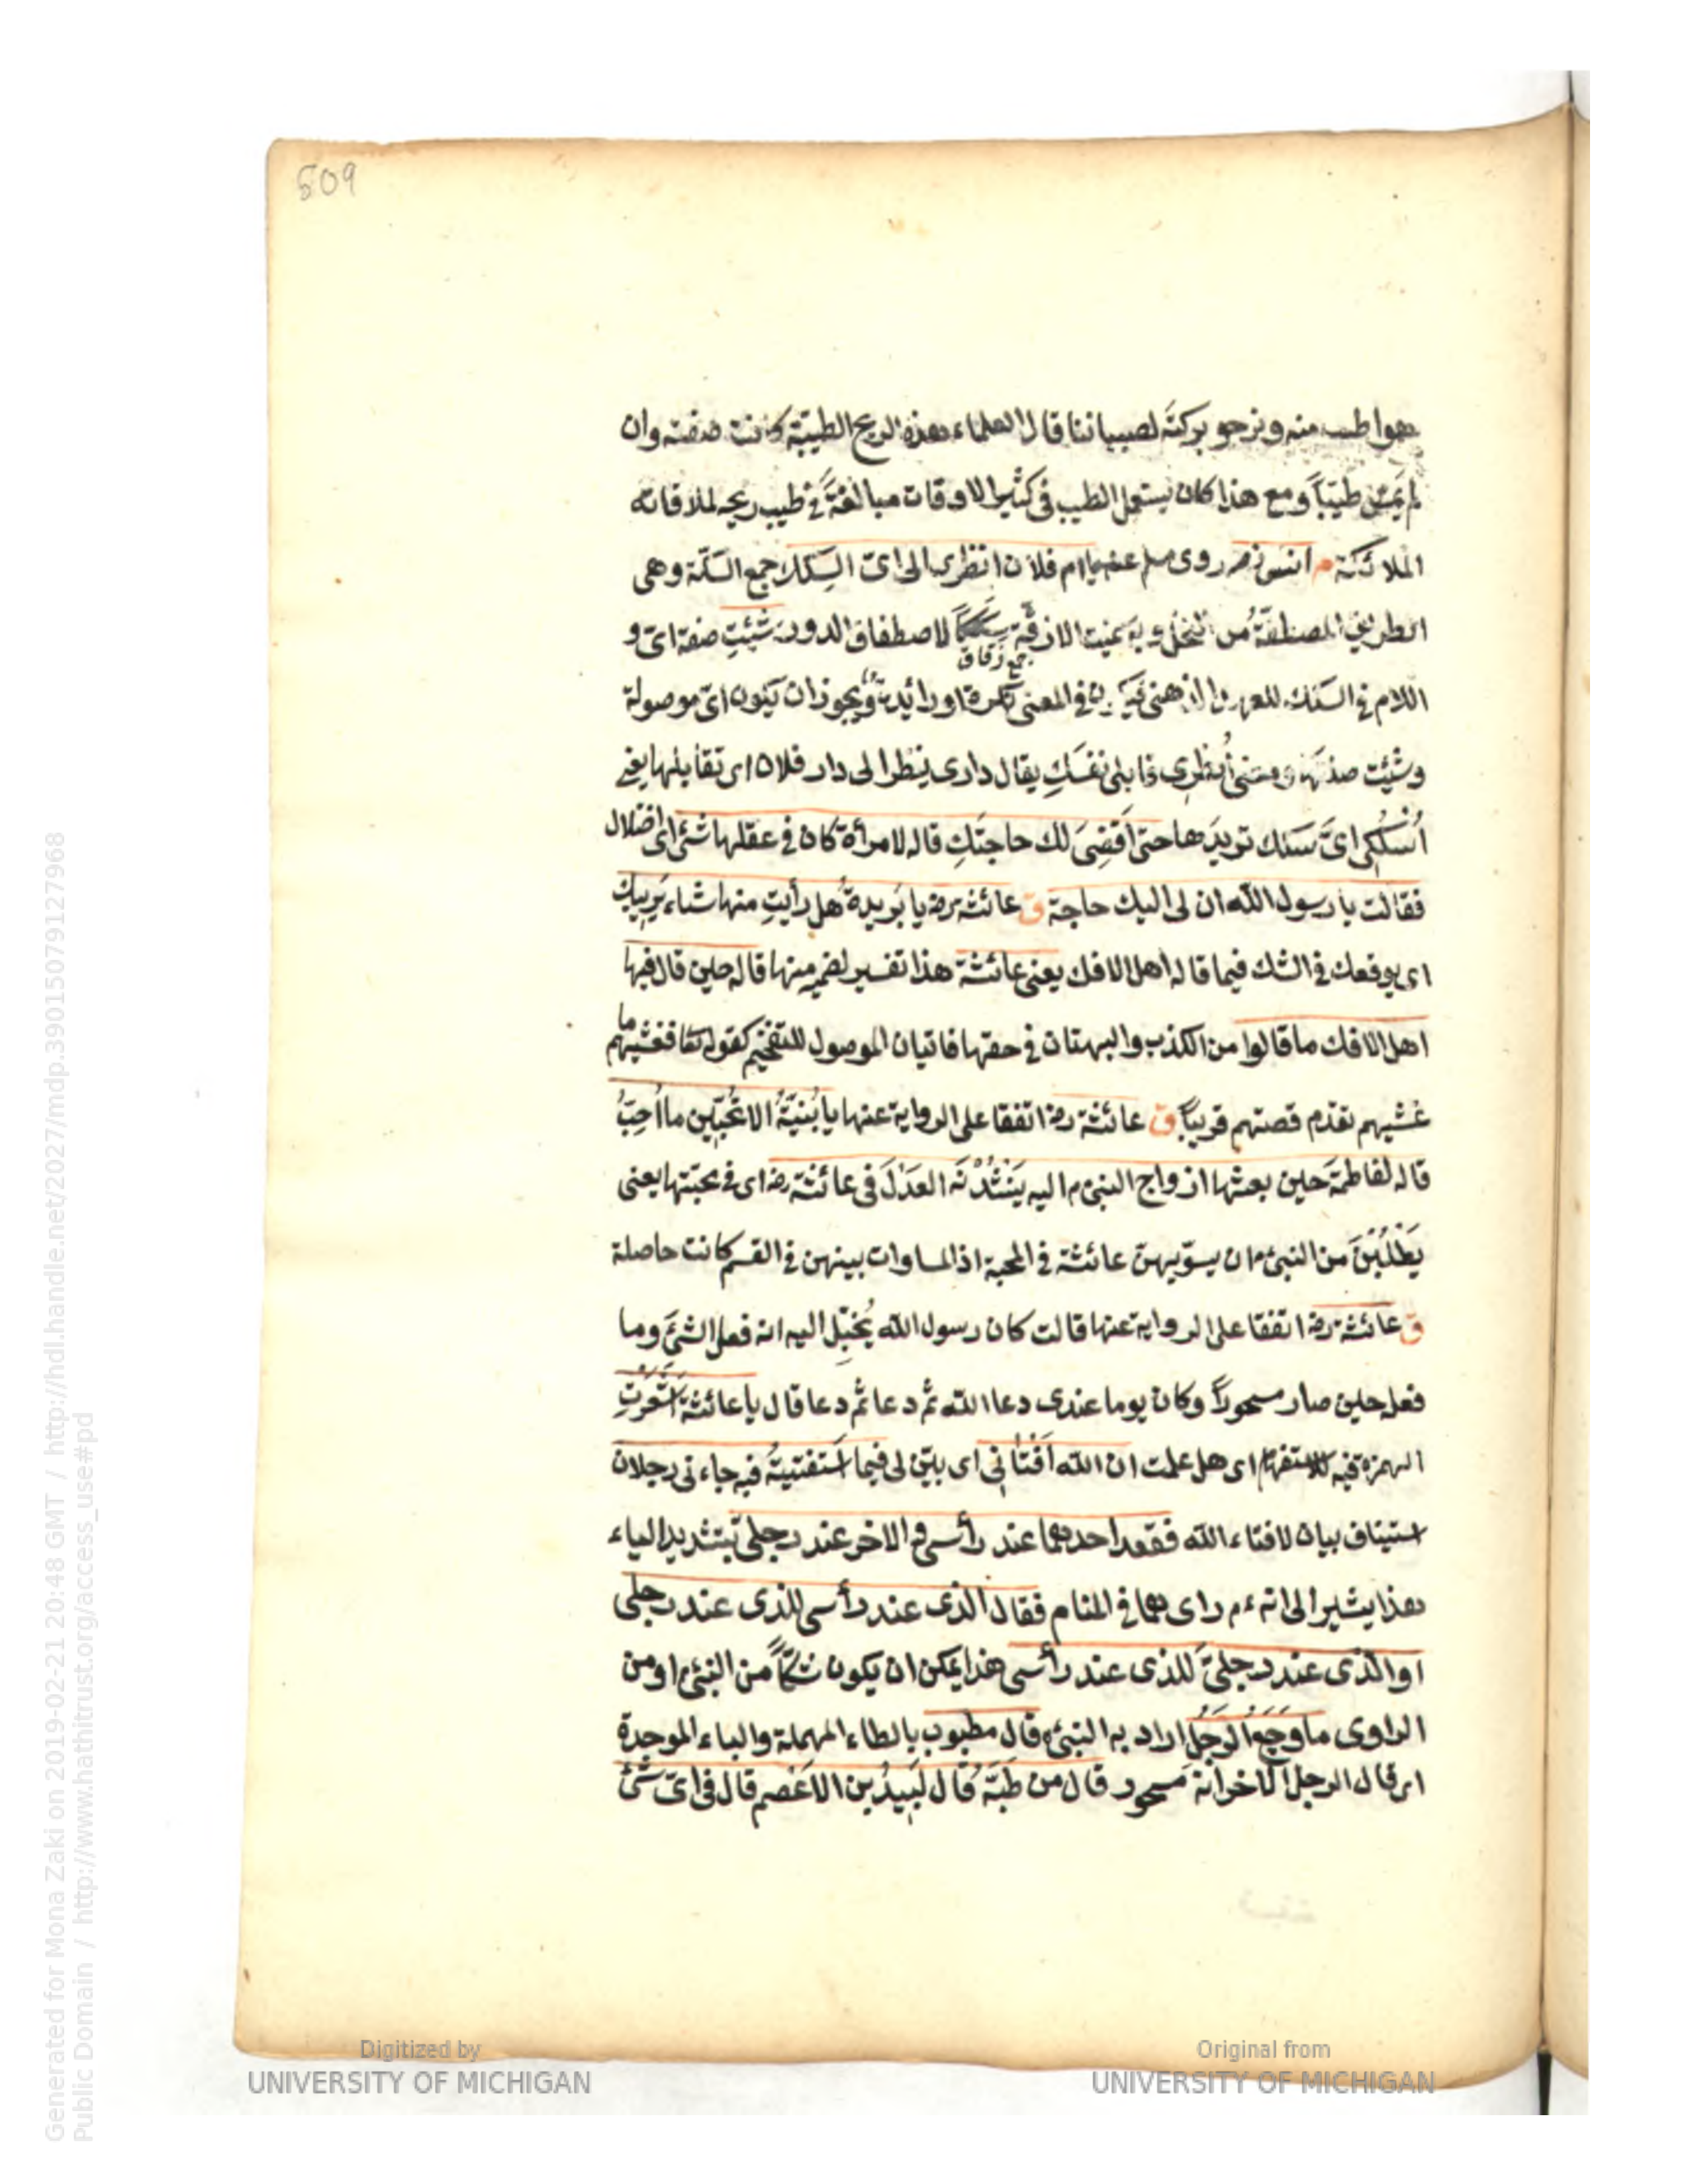 509
هو اطيب منه ونرجو بركتَه لصبياننا قال العلماء هذه الريح الطيبّة كانت صفته وان
لم يَمسّ طيبًا ومع هذا كان يستعمل الطيب فى كثير الاوقات مبالغةً فى طيب ريحه لملاقاته
الملائكة م انس رضہ روى مسلم عنه يا ام فلان انظرى الى اىّ السِكك جمع السكّة وهى
الطريق المصطفّة من النخل وبه سميت الازقّة سِككًا لاصطفاق الدور شئتِ صفة اىّ و
جمع زقاق
اللام فى السكك للعهد الذهنى فيكون فى المعنى نكرة او زائدة ويجوز ان يكون اىّ موصولة
وشئت صلتها ومعنى اُنظرى قابلى نفسَكِ يقال دارى ينظر الى دار فلان اى تقابلها يعنى
اُسلُكى اىَّ سكك تريدها حتى اَقضِىَ لك حاجتَكِ قاله لامرأة كان فى عقلها شئ اى اختلال
فقالت يا رسول الله ان لى اليك حاجة ق عائشة رضہ يا بَريرة هل رأيتِ منها شاء يَرِيبكِ
اى يوقعك فى الشك فيما قاله اهل الافك يعنى عائشة هذا تفسير لضمير منها قاله حين قال فيها
اهل الافك ما قالوا من الكذب والبهتان فى حقها فاتيان الموصول للتفخيم كقوله تعا فغشيهم ما
غشيهم تقدم قصتهم قريبًا ق عائشة رضہ اتفقا على الرواية عنها يا بُنيّةُ الا تُحبّين ما اُحِبُّ
قاله لفاطمةَ حين بعثها ازواج النبىّ م اليه يَنشُدْنَه العَدْلَ فى عائشة رضہ اى فى محبّتها يعنى
يَطْلُبْنَ من النبىّ م ان يسوّيهنّ عائشة فى المحبة اذ المساوات بينهن فى القسم كانت حاصلة
ق عائشة رضہ اتفقا على الرواية عنها قالت كان رسول الله يُخيّل اليه انه فعل الشئَ وما
فعله حين صار مسحورًا وكان يوما عندى دعا الله ثم دعا ثم دعا قال يا عائشة اَشَعَرْتِ
الهمزة فيه للاستفهام اى هل علمت ان الله اَفْتانِى اى بيّن لى فيما استفتيتُه فيه جاءنى رجلان
استيناف بيان لافتاء الله فقعد احدهما عند رأسى والاخر عند رجلىّ بتشديد الياء
هذا يشير الى انه ءم راى هما فى المنام فقال الذى عند رأسى للذى عند رجلى
او الذى عند رجلىّ للذى عند رأسى هذا يمكن ان يكون شكًّا من النبىّ او من
الراوى ما وَجَعُ الرَجُلِ اراد به النبىّ م قال مطبوب بالطاء المهملة والباء الموحدة
اى قال الرجل الاخر انه مسحور قال من طَبَّهُ قال لَبِيدُ بن الاَعْصم قال فى اىّ شئ